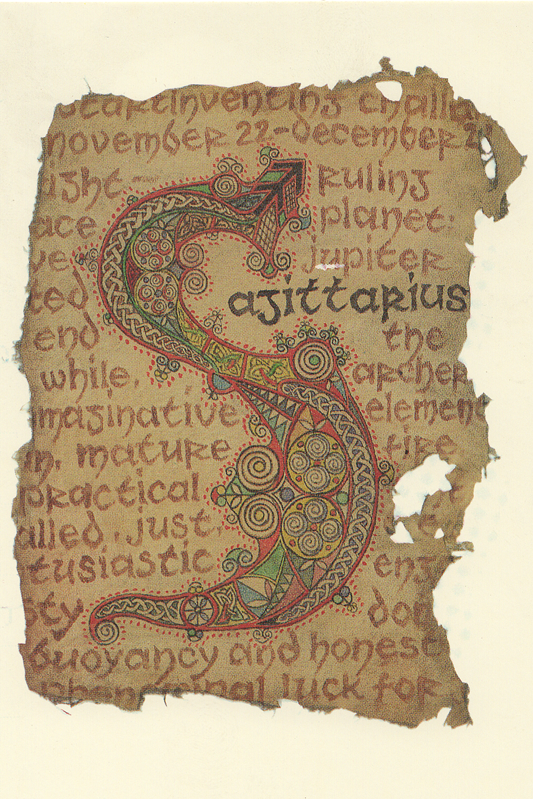 inventing
november 22-december
ight– ruling
ace planet:
jupiter
Sagittarius
end the
while, archer,
maginative element
mature fire
practical
alled, just,
tusiastic
sty
buoyancy and honest
luck for